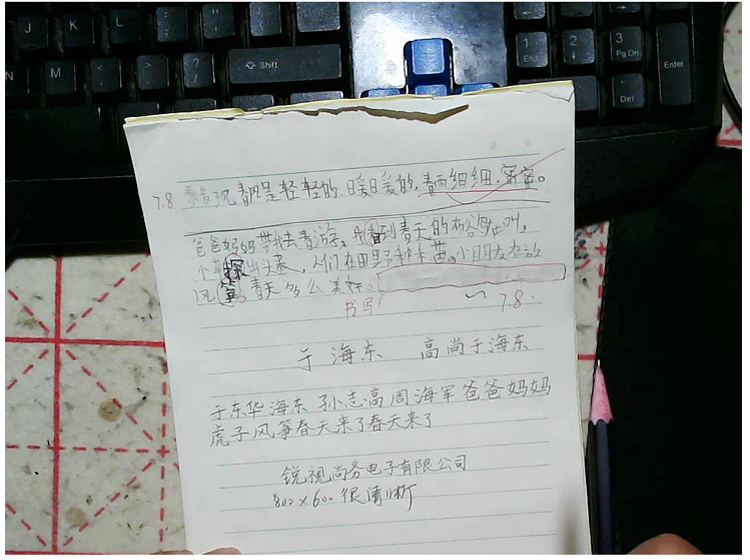 Shift
1
End
2
3
Pg Dn
Enter
Del
N
M
7.8 春风是轻轻的、暖暖的,春雨细细、密密。
爸爸妈妈带我去春游。我看到春天的布谷鸟在叫。
小草探出头来,人们在田野种禾苗。小朋友在放
风筝。春天多么美好。
书写
7.8.
于 海东 高尚于海东
于东华海东孙志高周海军爸爸妈妈
虎子风筝春天来了春天来了
锐视尚务电子有限公司
800×600很清晰